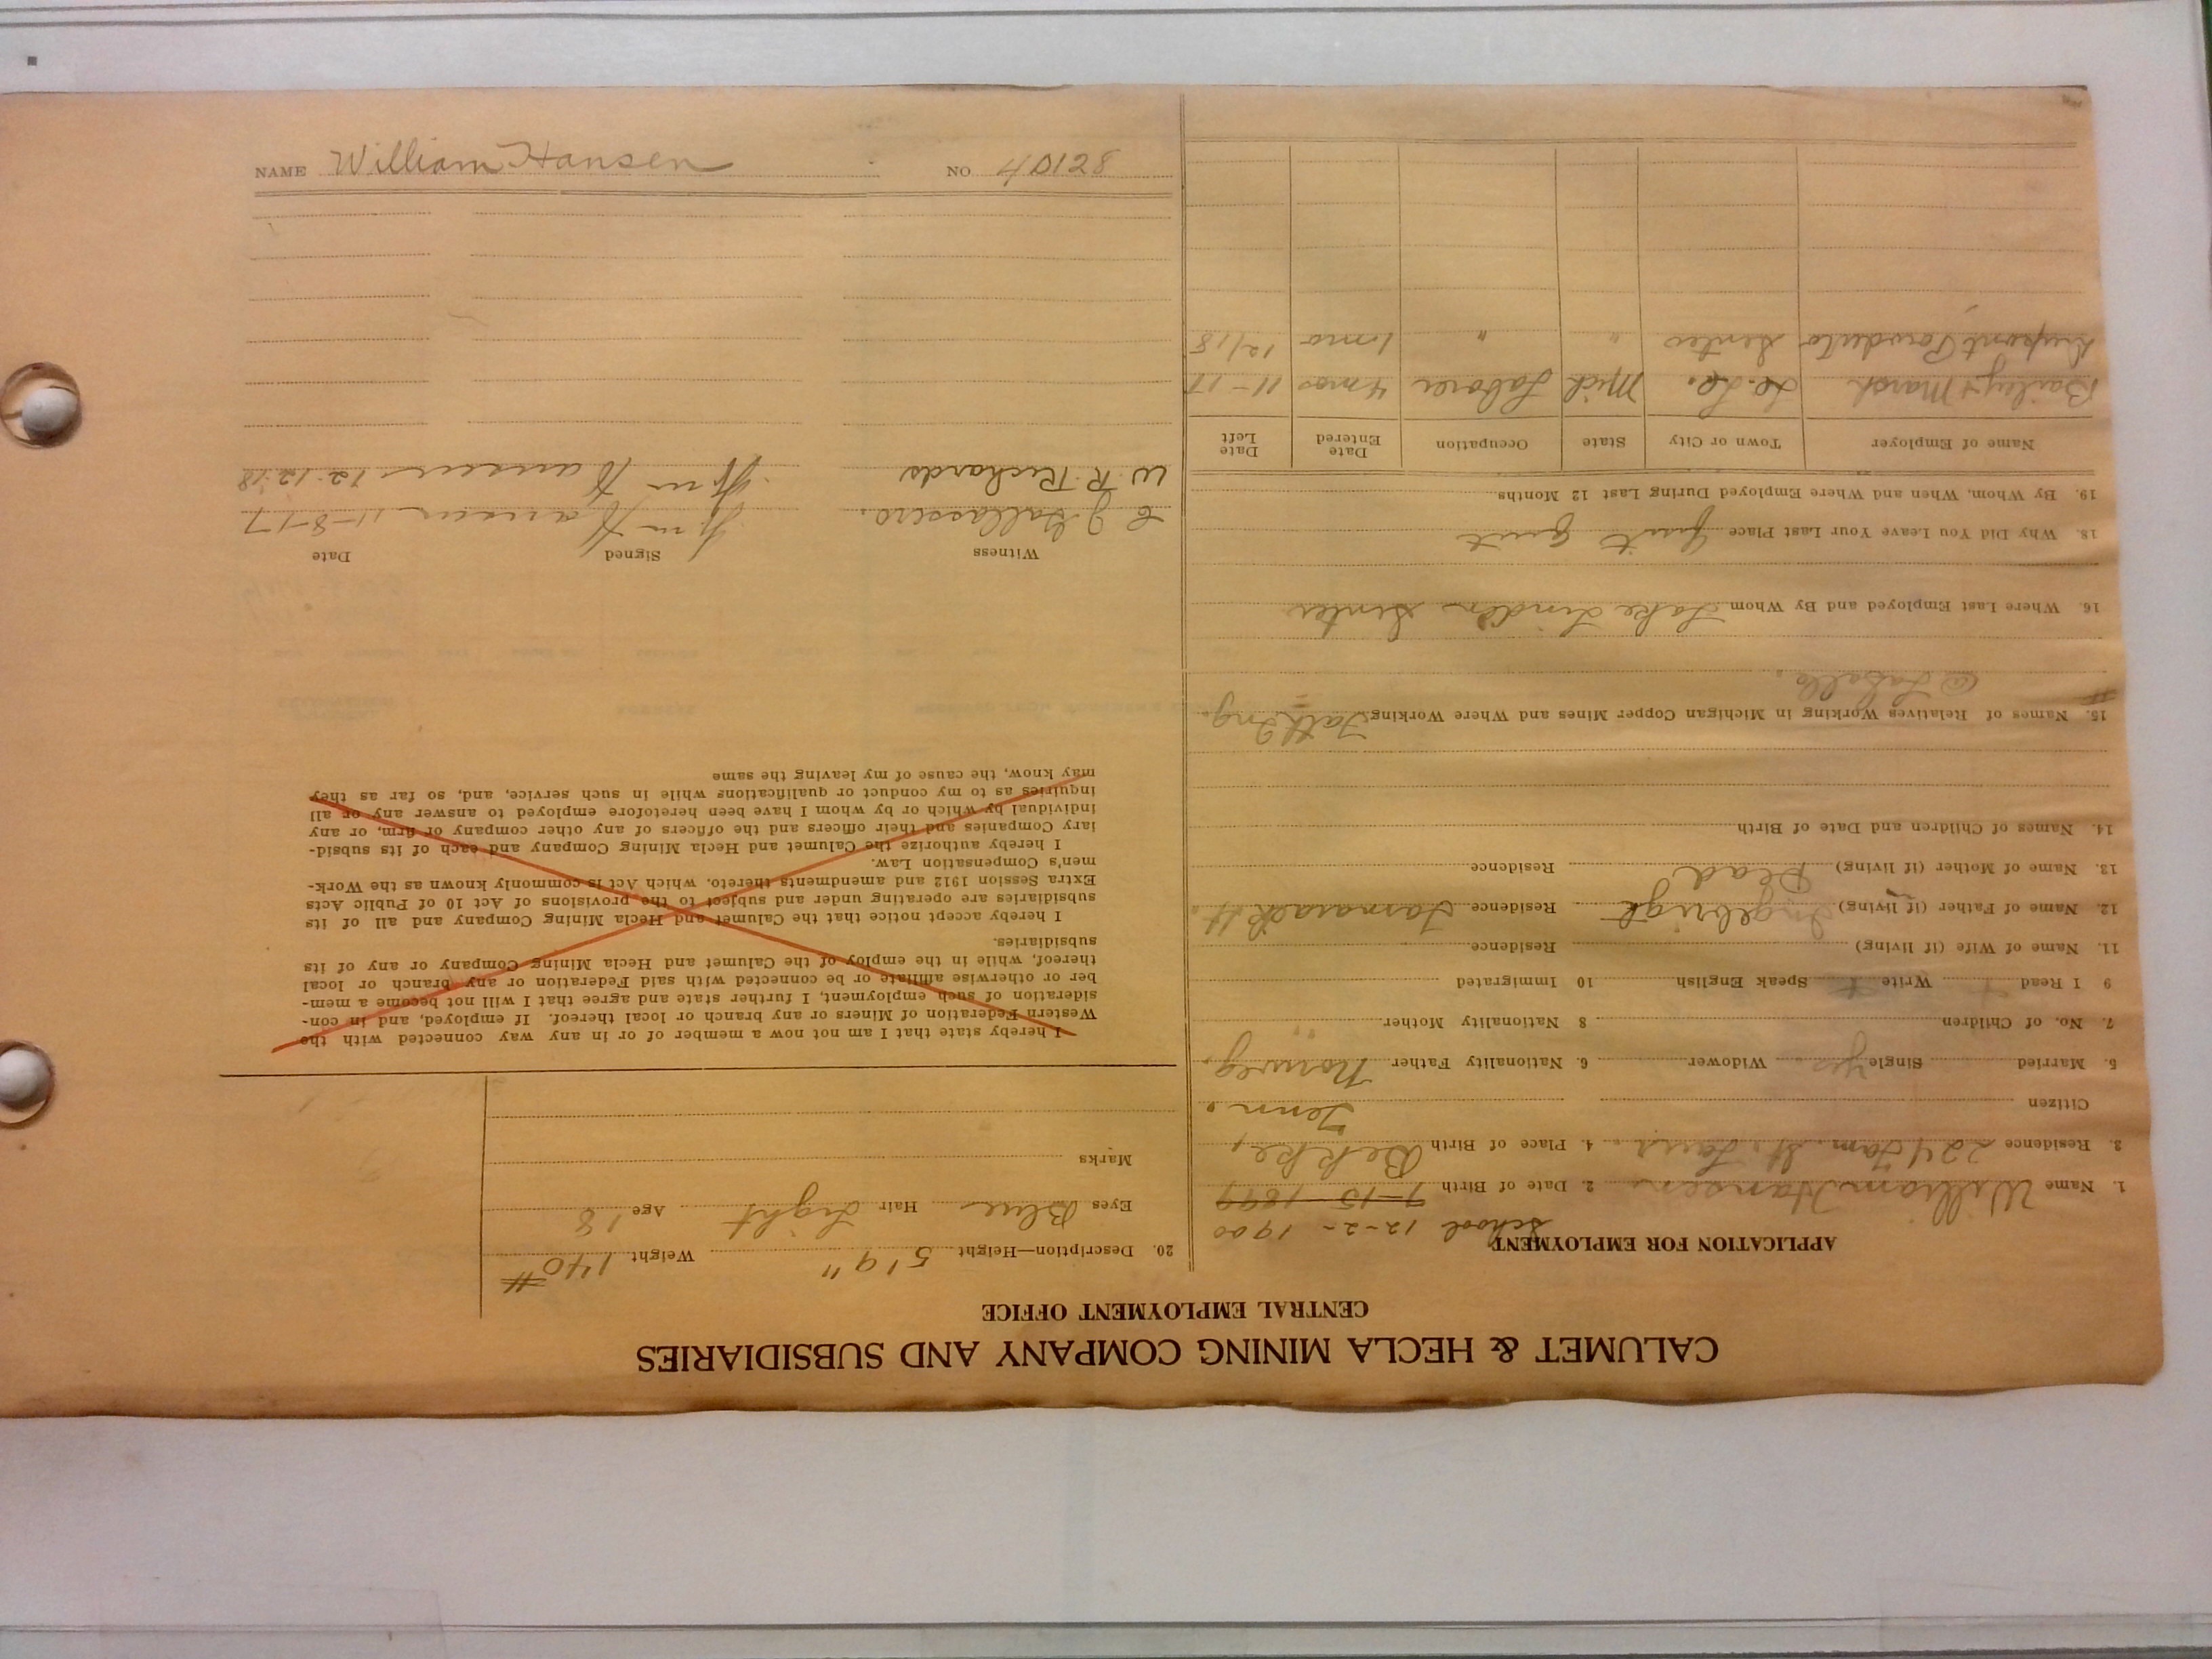 CALUMET & HECLA MINING COMPANY AND SUBSIDIARIES
CENTRAL EMPLOYMENT OFFICE
APPLICATION FOR EMPLOYMENT
School 12-2- 1900
1. Name William Hansen 2. Date of Birth 7-15-1899
3. Residence 224 Tam. St. Laur. 4. Place of Birth Bekke,
Citizen Tenn.
5. Married Single yes. Widower 6. Nationality Father Norweg.
7. No. of Children 8 Nationality Mother "
9 I Read Write Speak English 10 Immigrated
11. Name of Wife (if living) Residence
12. Name of Father (if living) Ingebrigt Residence Tamarack St.
13. Name of Mother (if living) Dead Residence
14. Names of Children and Date of Birth
15. Names of Relatives Working in Michigan Copper Mines and Where Working Fath Ing.
@ LaSalle.
16. Where Last Employed and By Whom Lake Linden Senter
18. Why Did You Leave Your Last Place Just quit
19. By Whom, When and Where Employed During Last 12 Months
Name of Employer Town or City State Occupation Date Entered Date Left
Bailey & Marsh Mich Laborer 4 mos 11-17
Dupont Powder Co Senter " " 1 mo 12/18
20. Description—Height 5'9" Weight 140#
Eyes Blue Hair Light Age 18
Marks
I hereby state that I am not now a member of or in any way connected with the
Western Federation of Miners or any branch or local thereof. If employed, and in con-
sideration of such employment, I further state and agree that I will not become a mem-
ber or otherwise affiliate or be connected with said Federation or any branch or local
thereof, while in the employ of the Calumet and Hecla Mining Company or any of its
subsidiaries.
I hereby accept notice that the Calumet and Hecla Mining Company and all of its
subsidiaries are operating under and subject to the provisions of Act 10 of Public Acts
Extra Session 1912 and amendments thereto, which Act is commonly known as the Work-
men's Compensation Law.
I hereby authorize the Calumet and Hecla Mining Company and each of its subsid-
iary Companies and their officers and the officers of any other company or firm, or any
individual by which or by whom I have been heretofore employed to answer any or all
inquiries as to my conduct or qualifications while in such service, and, so far as they
may know, the cause of my leaving the same
Witness Signed Date
Wm Hansen 11-8-17
W. R. Richards Wm Hansen 12-12-18
NAME William Hansen NO 4D128